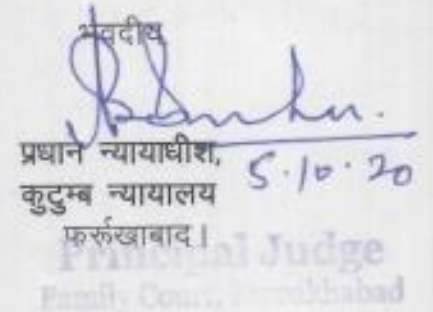 भवदीय
प्रधान न्यायाधीश,
5.10.20
कुटुम्ब न्यायालय
फर्रूखाबाद।
Principal Judge
Family Court, Farrukhabad